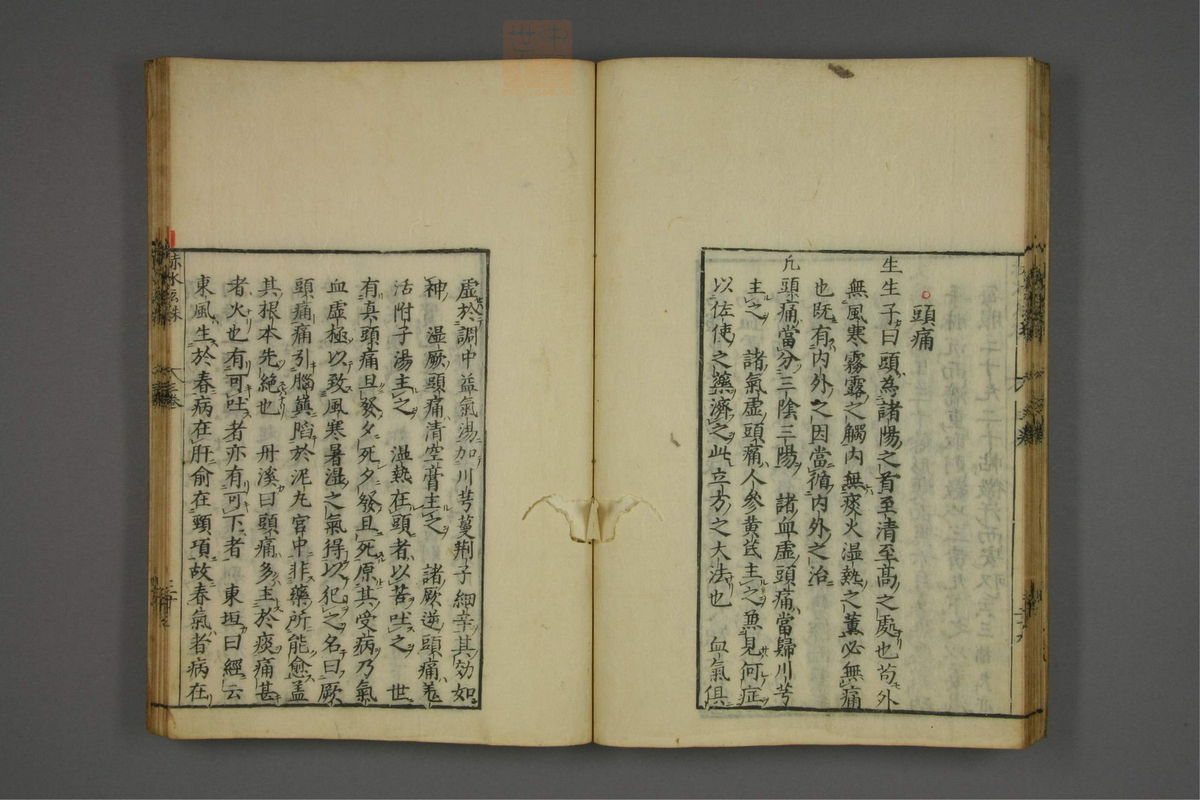 頭痛
生生子曰頭為諸陽之首至清至髙之處也苟外
無風寒霧露之觸内無痰火湿熱之薫必無痛
也既有内外之因當循内外之治
凢頭痛當分三陰三陽　諸血虚頭痛當歸川芎
主之　諸氣虚頭痛人參黄茋主之兼見何症
以佐使之藥濟之此立方之大法也　血氣倶
虚於調中益氣湯加川芎蔓荆子細辛其効如
神　湿厥頭痛清空膏主之　諸厥逆頭痛羗
活附子湯主之　湿熱在頭者以苦吐之　世
有真頭痛旦發夕死夕發旦死原其受病乃氣
血虚極以致風寒暑湿之氣得以犯之名曰厥
頭痛痛引腦巔陷於泥丸宮中非藥所能愈盖
其根本先絶也　丹溪曰頭痛多主於痰痛甚
者火也有可吐者亦有可下者　東垣曰經云
東風生於春病在肝俞在頸項故春氣者病在
赤水玄珠